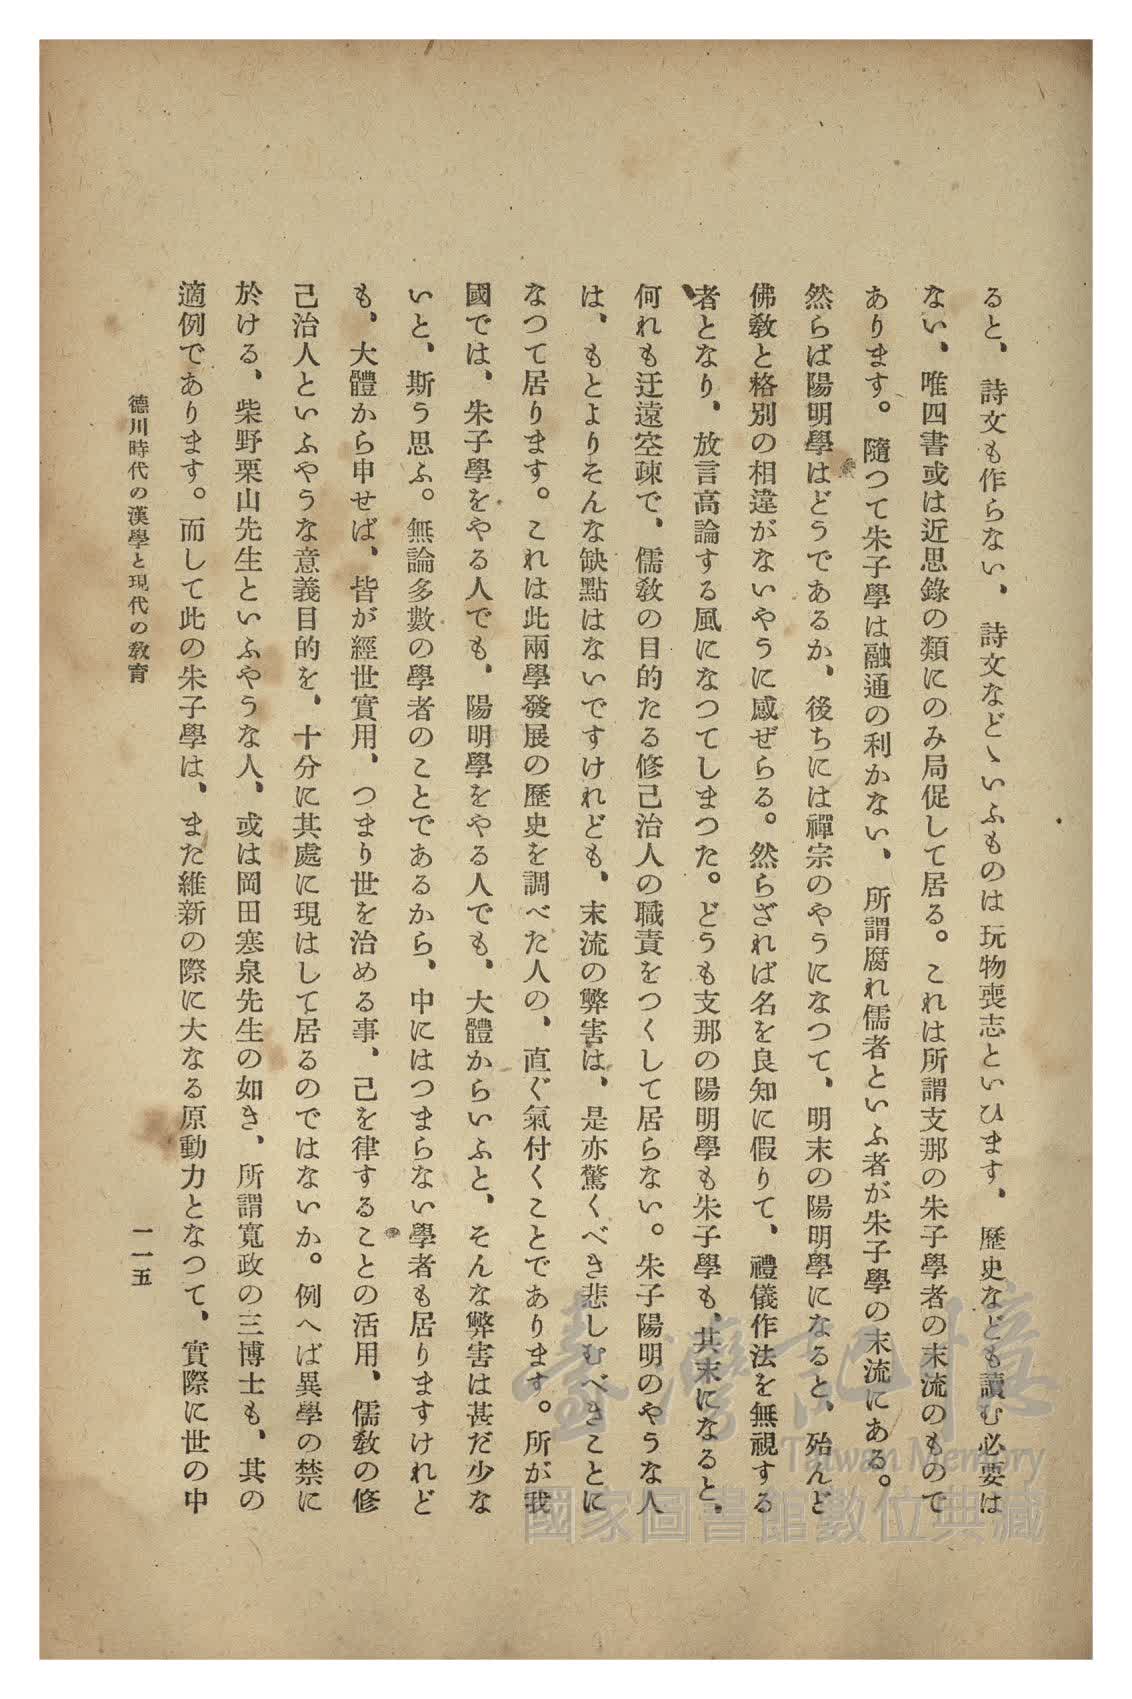 ると、詩文も作らない、詩文などゝいふものは玩物喪志といひます、歷史なども讀む必要は
ない、唯四書或は近思錄の類にのみ局促して居る。これは所謂支那の朱子學者の末流のもので
あります。隨つて朱子學は融通の利かない、所謂腐れ儒者といふ者が朱子學の末流にある。
然らば陽明學はどうであるか、後ちには禪宗のやうになつて、明末の陽明學になると、殆んど
佛敎と格別の相違がないやうに感ぜらる。然らざれば名を良知に假りて、禮儀作法を無視する
者となり、放言高論する風になつてしまつた。どうも支那の陽明學も朱子學も、其末になると、
何れも迂遠空疎で、儒敎の目的たる修己治人の職責をつくして居らない。朱子陽明のやうな人
は、もとよりそんな缺點はないですけれども、末流の弊害は、是亦驚くべき悲しむべきことに
なつて居ります。これは此兩學發展の歷史を調べた人の、直ぐ氣付くことであります。所が我
國では、朱子學をやる人でも、陽明學をやる人でも、大體からいふと、そんな弊害は甚だ少な
いと、斯う思ふ。無論多數の學者のことであるから、中にはつまらない學者も居りますけれど
も、大體から申せば、皆が經世實用、つまり世を治める事、己を律することの活用、儒敎の修
己治人といふやうな意義目的を、十分に其處に現はして居るのではないか。例へば異學の禁に
於ける、柴野栗山先生といふやうな人、或は岡田寒泉先生の如き、所謂寬政の三博士も、其の
適例であります。而して此の朱子學は、また維新の際に大なる原動力となつて、實際に世の中
德川時代の漢學と現代の敎育
一一五
臺灣記憶
Taiwan Memory
國家圖書館數位典藏